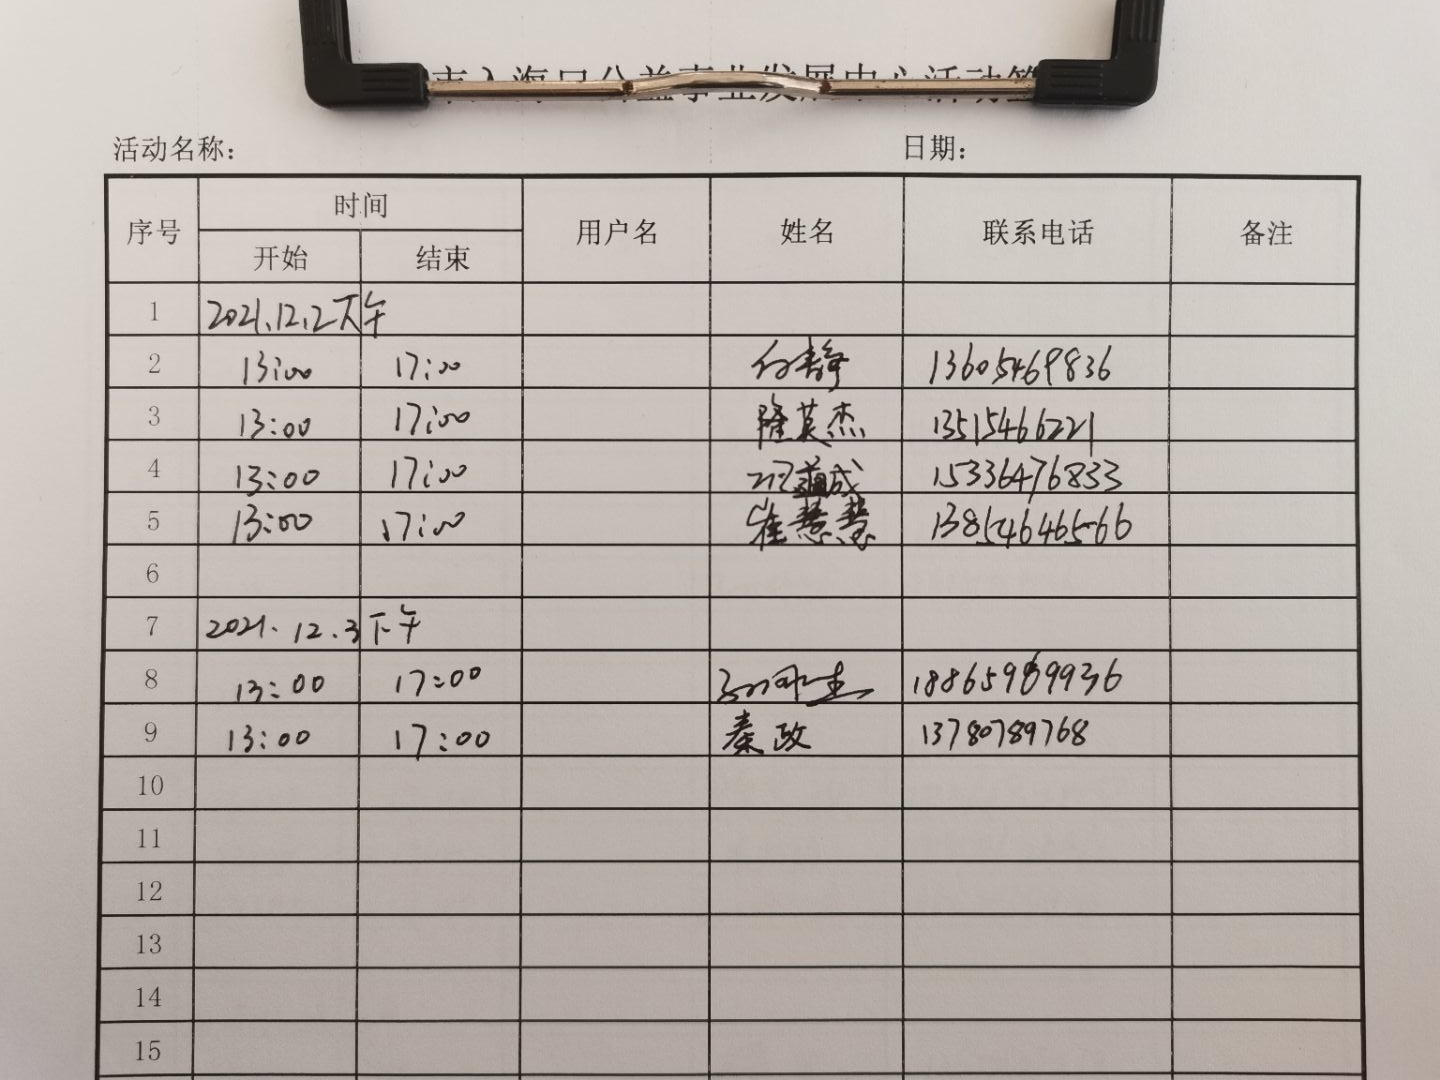 市入海口公益事业发展中心活动签
活动名称： 日期：
序号 时间 用户名 姓名 联系电话 备注
开始 结束
1 2021.12.2下午
2 13:00 17:00 付静 13605469836
3 13:00 17:00 隆英杰 13515466221
4 13:00 17:00 15336476833
5 13:00 17:00 崔慧慧 13854646566
6
7 2021.12.3下午
8 13:00 17:00 18865969936
9 13:00 17:00 秦政 13780789768
10
11
12
13
14
15